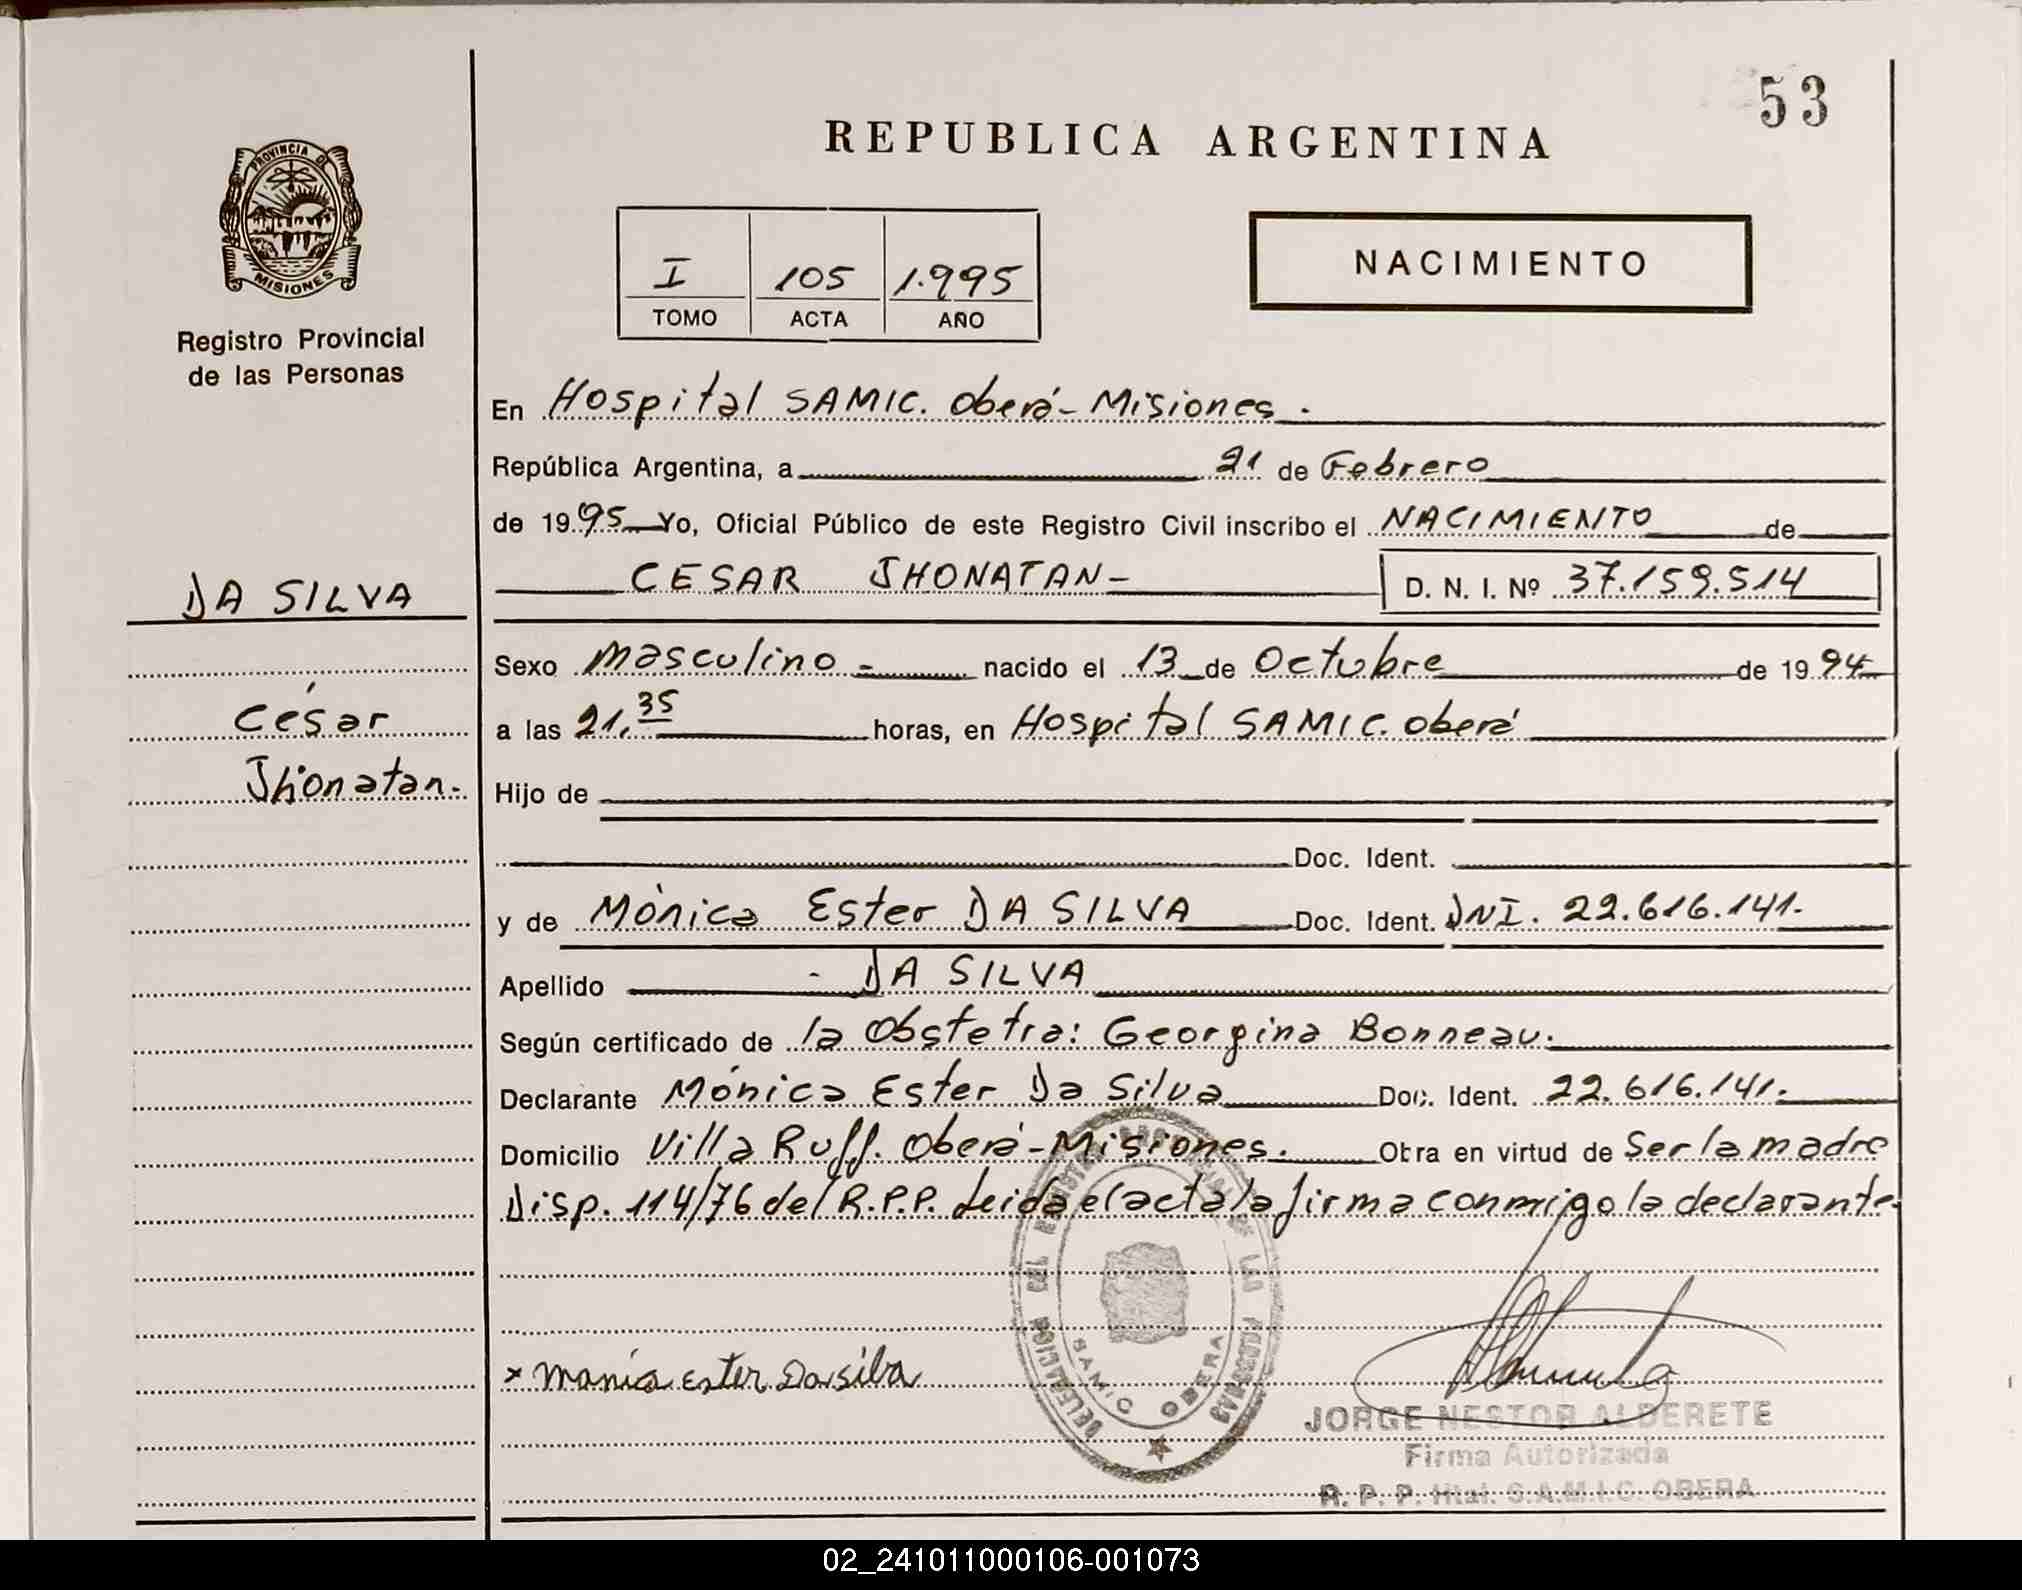 53
REPUBLICA ARGENTINA
PROVINCIA DE
MISIONES
Registro Provincial
de las Personas
I 105 1.995
TOMO ACTA AÑO
NACIMIENTO
En Hospital SAMIC. Oberá - Misiones.
República Argentina, a 21 de Febrero
de 1995 Yo, Oficial Público de este Registro Civil inscribo el NACIMIENTO de
CESAR JHONATAN - D. N. I. Nº 37.159.514
DA SILVA
César
Jhonatan.
Sexo Masculino = nacido el 13 de Octubre de 1994
a las 21.35 horas, en Hospital SAMIC. Oberá
Hijo de
Doc. Ident.
y de Mónica Ester DA SILVA Doc. Ident. DNI. 22.616.141.
Apellido - DA SILVA
Según certificado de la Obstetra: Georgina Bonneau.
Declarante Mónica Ester Da Silva Doc. Ident. 22.616.141.
Domicilio Villa Ruff. Oberá - Misiones. Obra en virtud de Ser la madre
Disp. 114/76 del R.P.P. Leida el acta la firma conmigo la declarante.
DELEGACION DEL REGISTRO PROVINCIAL DE LAS PERSONAS
SAMIC OBERA
x Monica Ester Da silva
JORGE NESTOR ALDERETE
Firma Autorizada
R. P. P. Htal. S.A.M.I.C. OBERA
02_241011000106-001073